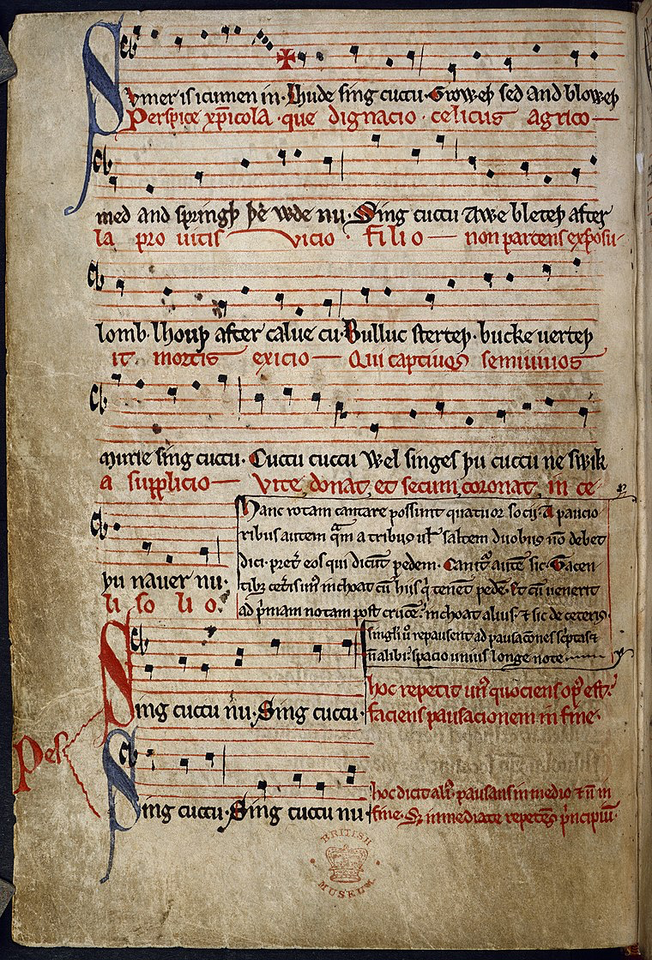 Svmer is icumen in. Lhude sing cuccu. Groweþ sed and bloweþ
Perspice xp̅icola. que dignacio. celicus agrico
med and springþ þe wde nu. Sing cuccu Awe bleteþ after
la pro uitis vicio. filio non parcens exposu
lomb. lhouþ after calue cu. Bulluc sterteþ. bucke uerteþ
it. mortis exicio Qui captiuos semiuiuos
murie sing cuccu. Cuccu cuccu Wel singes þu cuccu ne swik
a supplicio Vite donat et secum coronat in ce
þu nauer nu.
li so lio.
Hanc rotam cantare possunt quatuor socii. A paucio
ribus autem qͣm a tribus uł saltem duobus nō debet
dici. pret̉ eos qui dicūt pedem. Canit̉ autē sic. Tacen
tibꝫ cet̉is unꝰ inchoat cū hiis q̇ tenēt pedē. Et cū uenerit
ad ṗmam notam post crucē. inchoat alius. ⁊ sic de ceteris.
singłi ū repausent ad pausacōnes sc̉ptas ⁊
nͦ alibi. spacio unius longe note
Pes
Sing cuccu nu. Sing cuccu.
hoc repetit unꝰ quociens opꝰ est.
faciens pausacionem in fine.
Sing cuccu. Sing cuccu nu
hoc dicit alꝰ. pausans in medio ⁊ nͦ in
fine. Sꝫ immediate repetēs ṗncipiū.
BRITISH
MUSEUM